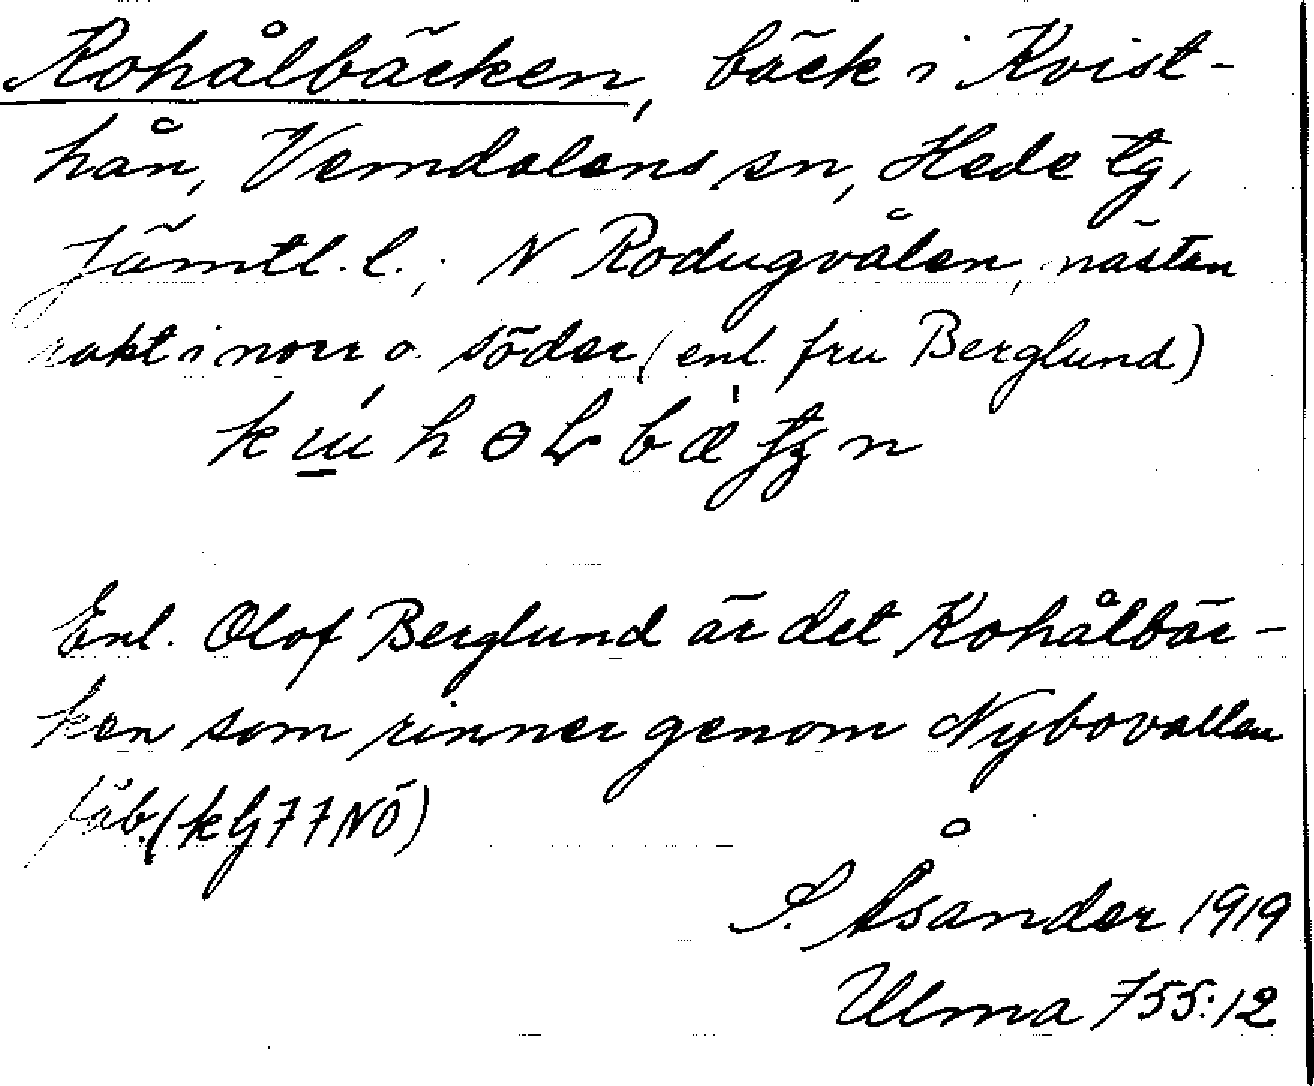 Kohålbäcken, bäck i Kvist-
hån, Vemdalens sn, Hede tg,
Jämtl. l.; N Rodugvålen, nästan
rakt i norr o. söder (enl. fru Berglund)
Enl. Olof Berglund är det Kohålbäc-
ken som rinner genom Nybovallen
fäb. (kbj 77 NÖ)
S. Åsander 1919
Ulma 755:12